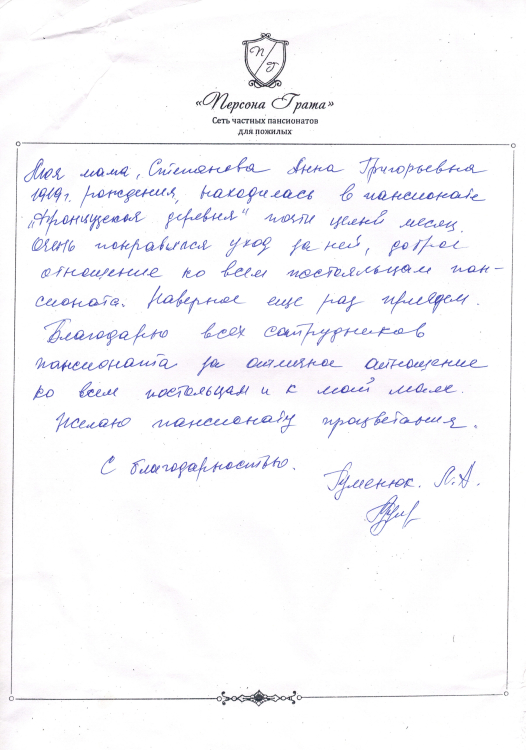 П
Г
«Персона Грата»
Сеть частных пансионатов
для пожилых
Моя мама, Степанова Анна Григорьевна
1919г. рождения, находилась в пансионате
„Французская деревня" почти целый месяц.
Очень понравился уход за ней, доброе
отношение ко всем постояльцам пан-
сионата. Наверное еще раз приедем.
Благодарю всех сотрудников
пансионата за отличное отношение
ко всем постояльцам и к моей маме.
Желаю пансионату процветания.
С благодарностью.
Гуменюк. Л.А.